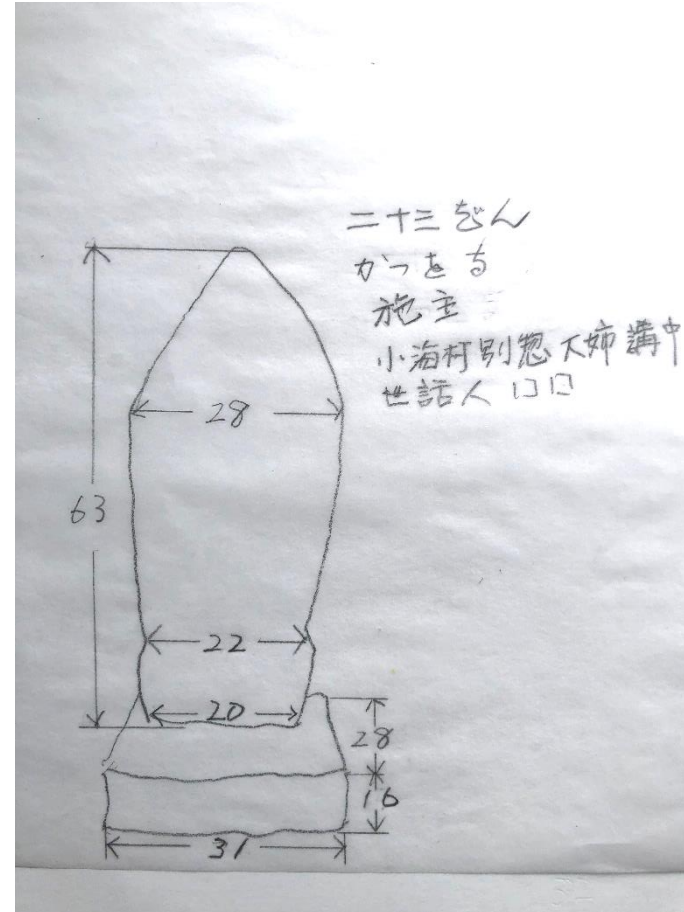 二十三ぢん
かつをち
施主
小海村別惣大姉講中
世話人 口口
28
63
22
20
28
16
31